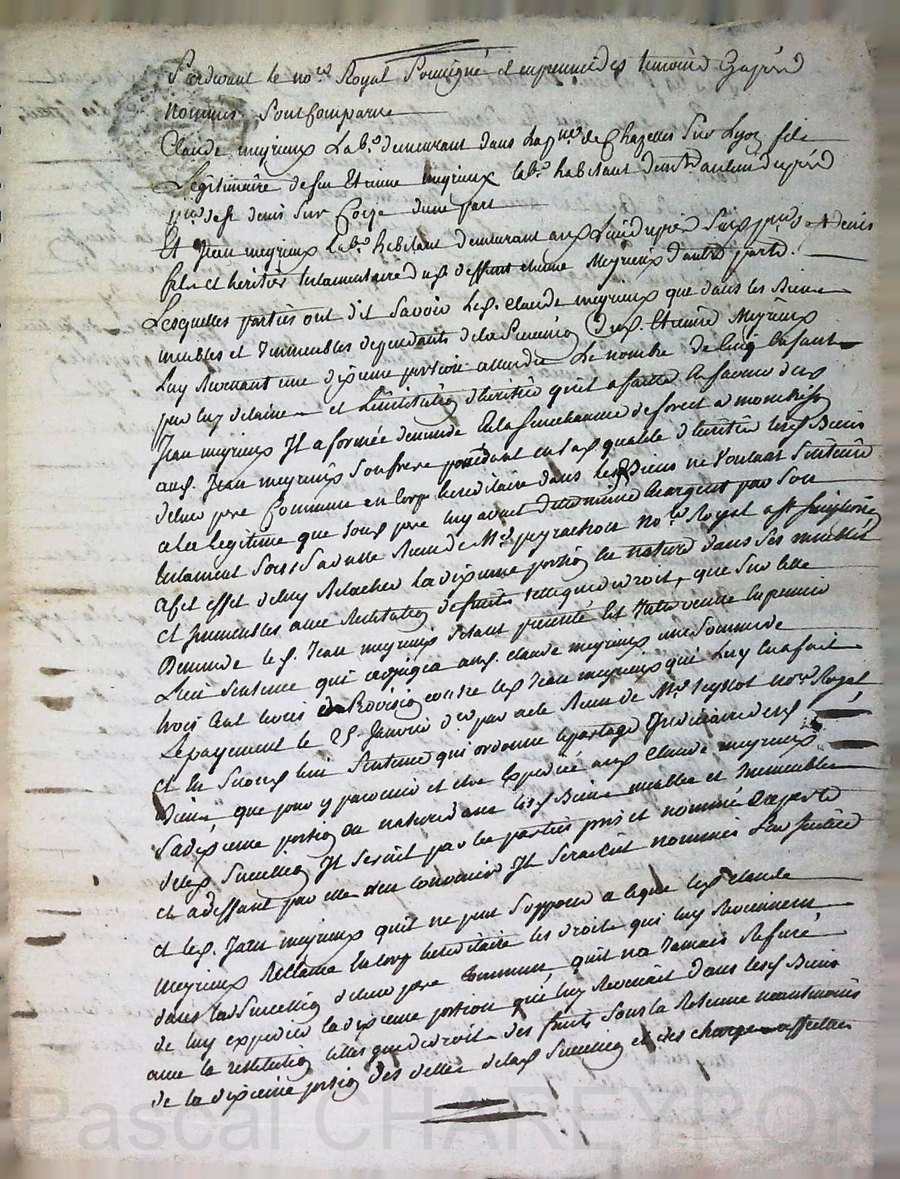 Pardevant le no.re Royal Soussigné et en presence des temoins Cy après
Nommés Sont Comparus
Claude meyrieux Lab.r demeurant dans la p.sse de Chazelles Sur Lyon fils
Legitimaire de feu Etienne meyrieux lab.r habitant
p.sse de S.t denis Sur Coize d'une part
Et Jean meyrieux lab.r habitant demeurant aux Sus p.sse de S.t denis
fils et heritier testamentaire dud. deffunt etienne Meyrieux d'autre parts.
Lesquelles parties ont dit Savoir led. claude meyrieux que dans les Biens
meubles et Immeubles dependants de la Succession dud. Etienne Meyrieux
Luy Revenant une dixieme portion attendu Le nombre de Cinq Enfants
par luy delaissé et L'institution d'heritier qu'il a faitte En faveur dud.
Jean meyrieux Il a formée demande En la Senechaussée de forest a montbrison
aud. Jean meyrieux Son frere possedant en lad. qualité d'heritier lesd. Biens
de leur pere Commun en Corps hereditaire dans lesd. Biens ne Voulant S'en tenir
a la Legitime que Sond. pere luy avait determinée En argent par Son
testament Sous Sa datte Reçu de M.e peyrachon no.re Royal
a Cet effet de luy Relacher La dixieme portion En nature dans Ses meubles
et Immeubles avec Restitution de fruits telle que de droit, que Sur cette
Demande led. Jean meyrieux S'étant présenté Est Intervenue En premier
Lieu Sentence qui adjugea aud. claude meyrieux une Somme de
trois Cent livres de Provision contre led. Jean meyrieux qui Luy En a fait
Le payement le 25 Janvier d.er par acte Reçu de M.e no.re Royal
et En Second lieu Sentence qui ordonne le partage Judiciaire desd.
Biens que pour y parvenir et etre Expedié aud. Claude meyrieux
Sa dixieme portion en nature dans lesd. Biens meubles et Immeubles
de lad. Succession Il Serait par les parties pris et nommé Experts
et a deffaut par elles d'en Convenir Il Seraient nommés En Justice
et led. Jean meyrieux qu'il ne peut S'opposer a ce que led. Claude
Meyrieux Reclame En Corps hereditaire les droits qui luy Reviennent
dans la Succession de leur pere Commun, qu'il n'a Jamais Refusé
de luy expedier la dixieme portion qui luy Revenait dans lesd. Biens
avec la restitution telle que de droit des fruits Sous la Retenue neantmoins
de la dixieme portion des dettes de lad. Succession et des charges
Pascal CHAREYRON